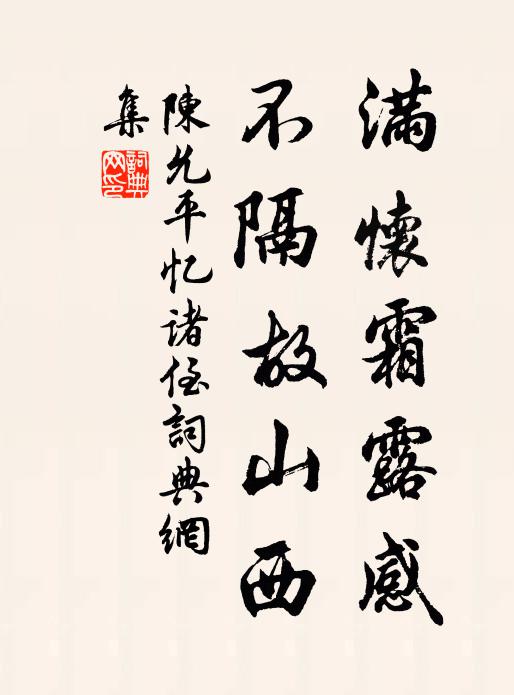 滿懷霜露感
不隔故山西
陳允平忆诸侄詞典網
集
詞典
网印